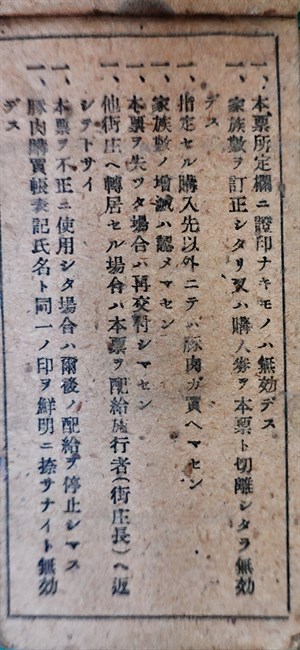 一、本票所定欄ニ證印ナキモノハ無効デス
一、家族數ヲ訂正シタリ又ハ購入券ヲ本票ト切離シタラ無効
デス
一、指定セル購入先以外ニテハ豚肉ガ買ヘマセン
一、家族數ノ增減ハ認メマセン
一、本票ヲ失ツタ場合ハ再交付シマセン
一、他街庄ヘ轉居セル場合ハ本票ヲ配給施行者(街庄長)ヘ返
シテ下サイ
一、本票ヲ不正ニ使用シタ場合ハ爾後ノ配給ヲ停止シマス
一、豚肉購買帳表記氏名ト同一ノ印ヲ鮮明ニ捺サナイト無効
デス